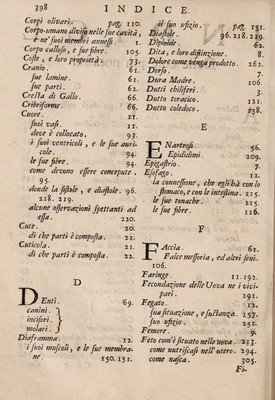 398
INDICE.
Corpi olivari. pag. 110.
Corpo umano diviso nelle sue cavità,
e ne' suoi membri annessi. 1.
Corpo calloso, e sue fibre. 105.
Coste, e loro proprietà. 73.
Cranio. 61.
sue lamine. 62.
sue parti. 61.
Cresta di Gallo. 66.
Cribriforme. 66.
Cuore. 11.
suoi vasi. 11.
dove è collocato. 93.
i suoi ventricoli, e le sue auri-
cole. 94.
le sue fibre. 94.
come devono essere concepute.
95.
donde la sistole, e diastole. 96.
218. 219.
alcune osservazioni spettanti ad
essa. 220.
Cute. 20.
di che parti è composta. 21.
Cuticola. 21.
di che parti è composta. 22.
D
DEnti. 69.
canini.
incisori.
molari.
Diaframma. 12.
i suoi muscoli, e le sue membra-
ne. 150. 151.
il suo ufizio. pag. 151.
Diastole. 96. 218. 219.
Diploide. 62.
Dita, e loro distinzione. 8.
Dolore come venga prodotto. 262.
Dorso. 7.
Dura Madre. 106.
Dutti chiliferi. 3.
Dutto toracico. 121.
Dutto coledoco. 158.
E
ENartrosi. 56.
Epididimi. 209.
Epigastrio. 7.
Esofago. 11.
la connessione, che egli hà con lo
stomaco, e con le intestina. 115.
le sue tonache. 115.
le sue fibre. 116.
F
FAccia. 61.
Falce messoria, ed altri seni.
106.
Faringe. 11. 192.
Fecondazione delle Uova ne i vivi-
pari. 291.
Fegato. 12.
sua situazione, e sustanza. 157.
suo ufizio. 251.
Femore. 9.
Feto com'è situato nelle uova. 213.
come nutriscasi nell'utero. 294.
come nasca. 305.
Fi-